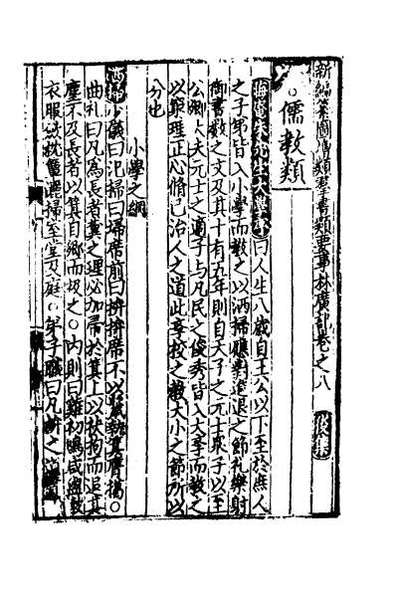 新編纂圖增類群書類要事林廣記卷之八 後集
○儒教類
晦菴朱先生大學序曰人生八歲自王公以下至於庶人
之子弟皆入小學而教之以洒掃應對進退之節礼樂射
御書數之文及其十有五年則自天子之元士衆子以至
公卿大夫元士之適子与凡民之俊秀皆入大學而教之
以窮理正心脩己治人之道此李校之教大小之節所以
分也
小學之綱
洒掃 少儀曰汜掃曰埽席前曰拚拚席不以鬣執箕膺擖○
曲礼曰凡為長者糞之理必加帚於箕上以袂拘而退其
塵不及長者以箕自郷而扱之○內則曰雞初鳴咸盥漱
衣服斂枕簟洒掃室堂及庭○弟子職曰凡拚之